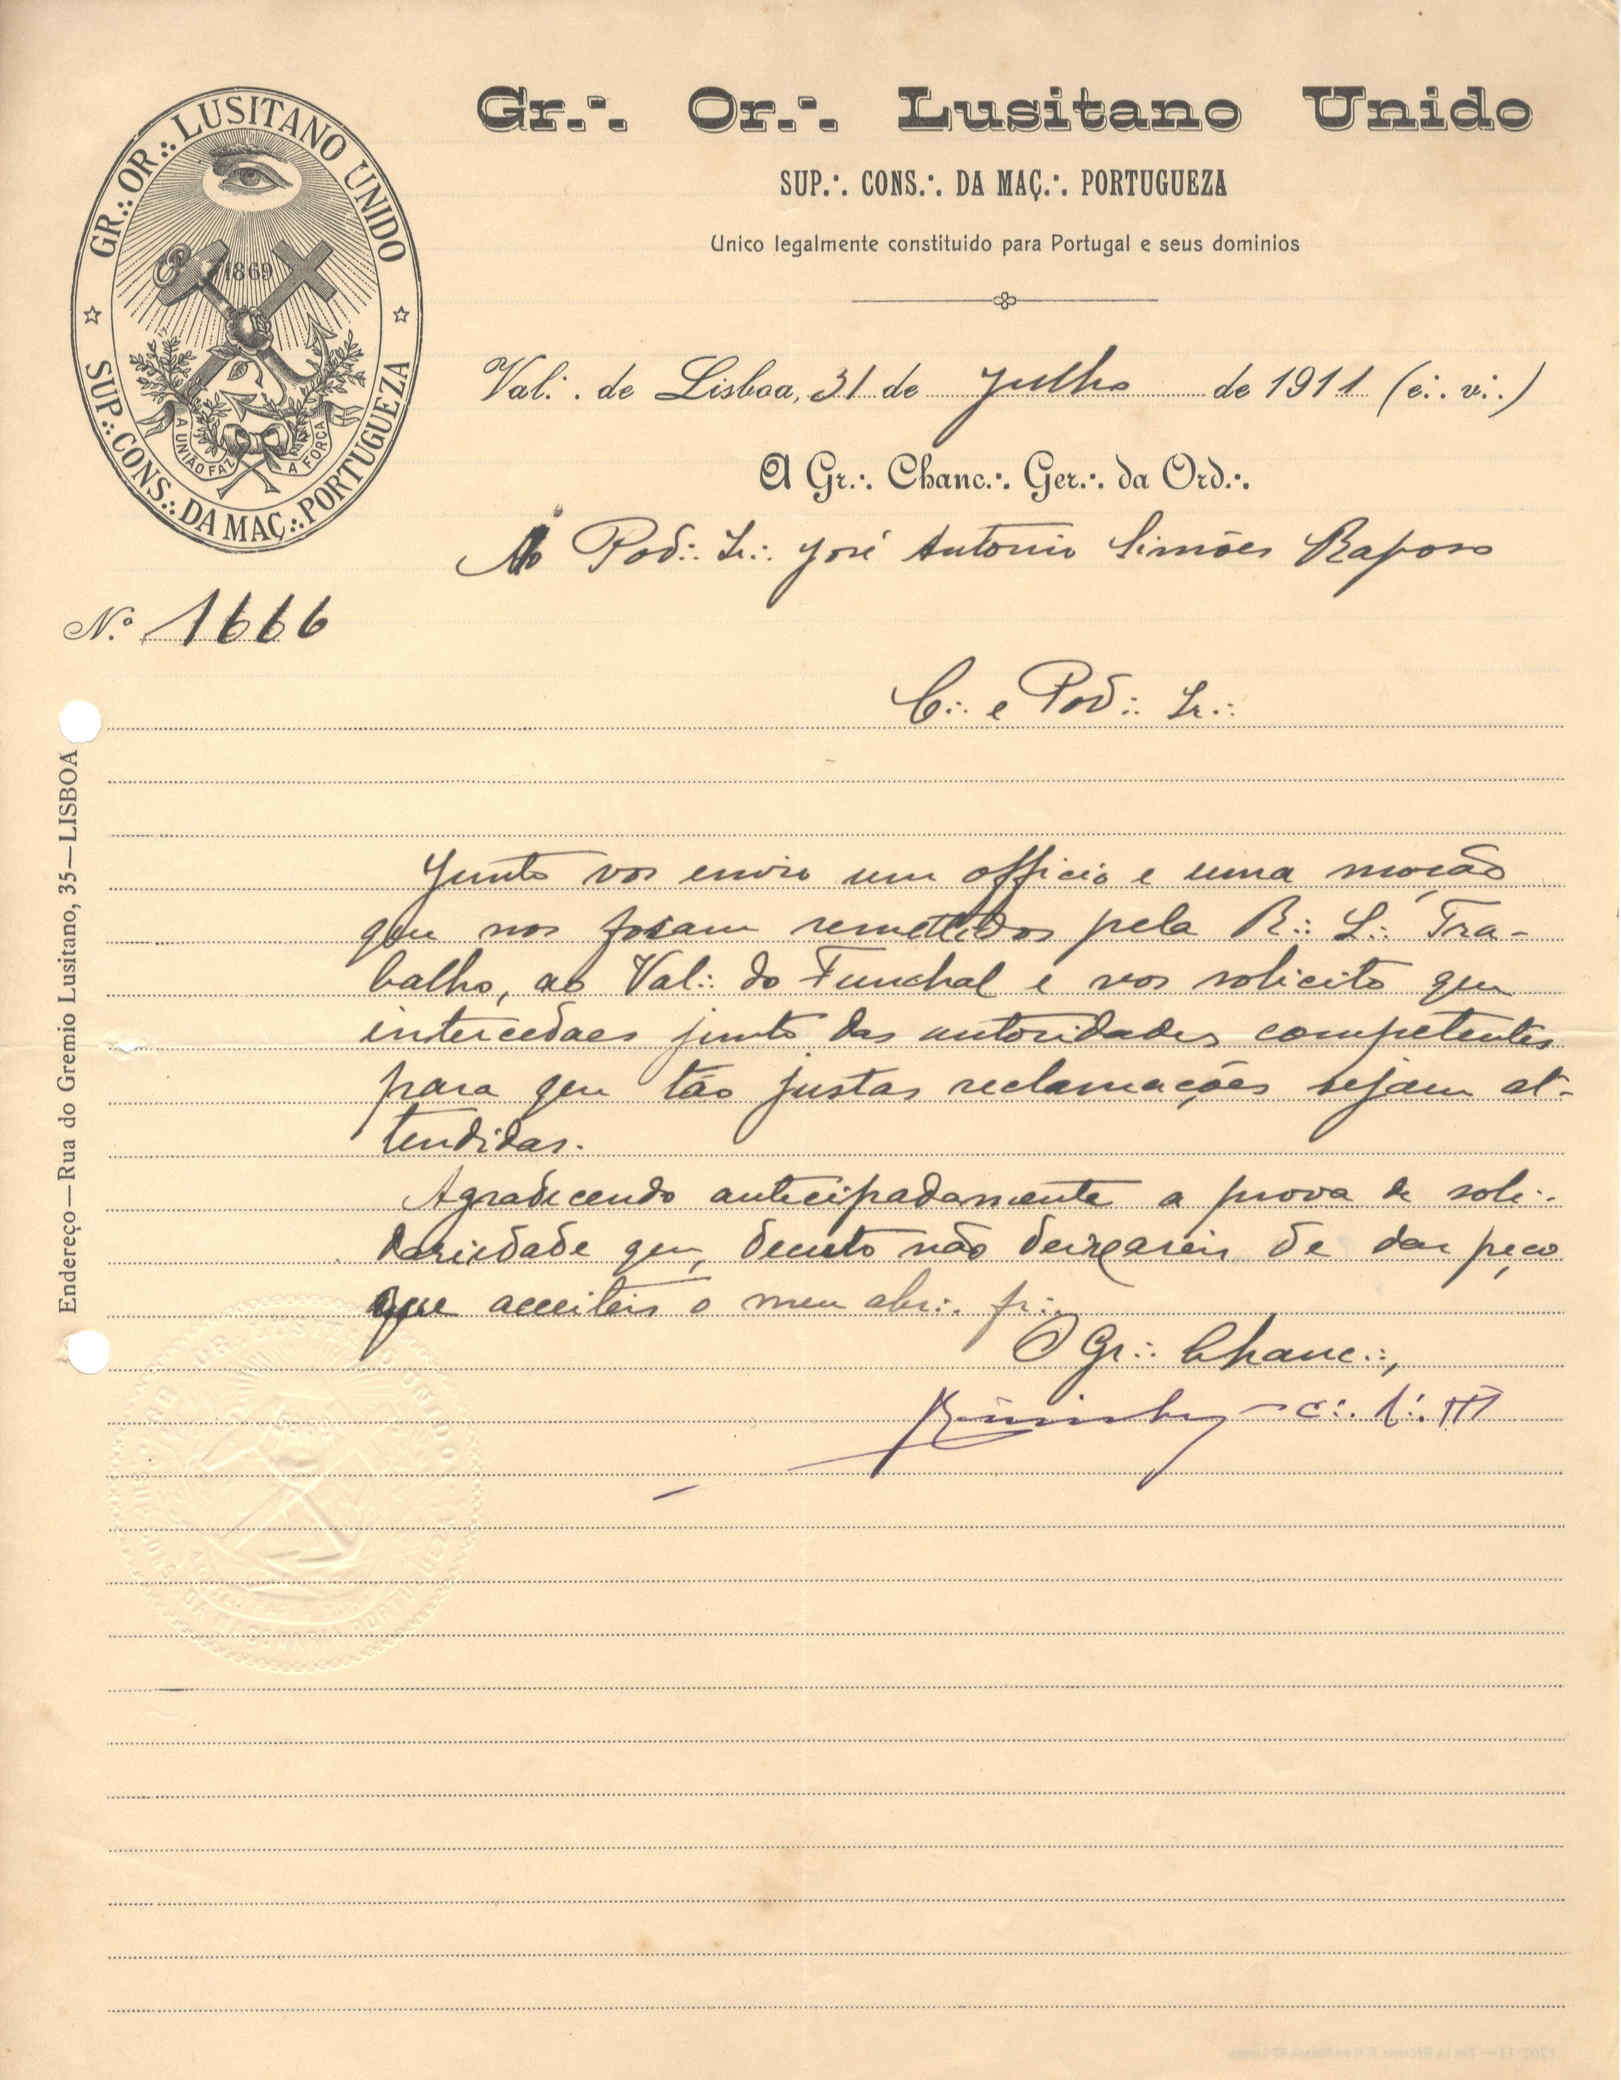 Gr.∴ Or.∴ Lusitano Unido
SUP.∴ CONS.∴ DA MAÇ.∴ PORTUGUEZA
Unico legalmente constituido para Portugal e seus dominios
GR.∴ OR.∴ LUSITANO UNIDO
SUP.∴ CONS.∴ DA MAÇ.∴ PORTUGUEZA
1869
A UNIÃO FAZ A FORÇA
Val.∴ de Lisboa, 31 de Julho de 1911 (e.∴ v.∴)
A Gr.∴ Chanc.∴ Ger.∴ da Ord.∴
Ao Pod.∴ Ir.∴ José Antonio Simões Raposo
N.º 1666
C.∴ e Pod.∴ Ir.∴
Endereço—Rua do Gremio Lusitano, 35—LISBOA
Junto vos envio um officio e uma moção
que nos foram remettidos pela R.∴ L.∴ Tra-
balho, ao Val.∴ do Funchal e vos solicito que
intercedaes junto das autoridades competentes
para que tão justas reclamações sejam at-
tendidas.
Agradecendo antecipadamente a prova de soli-
dariedade que, decerto não deixareis de dar peço
que acceiteis o meu abr.∴ fr.∴
O Gr.∴ Chanc.∴,